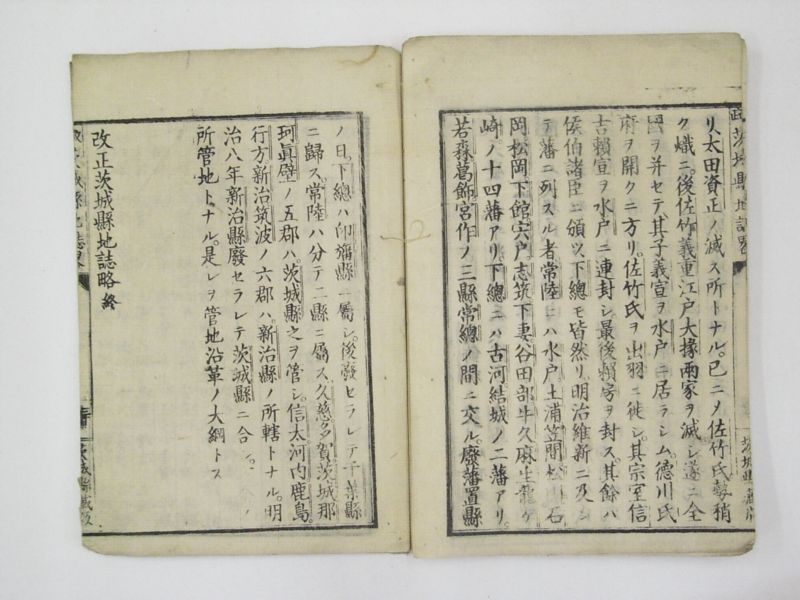 リ、太田資正ノ滅ス所トナル。已ニ〆佐竹氏勢稍
ク熾ニ。後佐竹義重江戸大掾両家ヲ滅シ遂ニ全
國ヲ并セテ其子義宣ヲ水戸ニ居ラシム。徳川氏
府ヲ開クニ方リ。佐竹氏ヲ出羽ニ徙シ。其宗室信
吉賴宣ヲ水戸ニ連封シ。最後賴房ヲ封ス。其餘ハ
侯伯諸臣ニ頒ツ。下總モ皆然リ。明治維新ニ及ン
テ藩ニ列スル者常陸ニハ水戸土浦笠間松川石
岡松岡下館宍戸志筑下妻谷田部牛久麻生龍ケ
崎ノ十四藩アリ。下總ニハ古河結城ノ二藩アリ。
若森葛飾宮作ノ三縣常總ノ間ニ交ル。廢藩置縣
ノ日。下總ハ印旛縣ニ屬シ。後廢セラレテ千葉縣
ニ歸ス。常陸ハ分テ二縣ニ屬ス久慈多賀茨城那
珂眞壁ノ五郡ハ。茨城縣之ヲ管シ。信太河内鹿島
行方新治筑波ノ六郡ハ。新治縣ノ所轄トナル。明
治八年新治縣廢セラレテ茨城縣ニ合シ。
所管地トナル。是レヲ管地沿革ノ大綱トス
改正茨城縣地誌略終